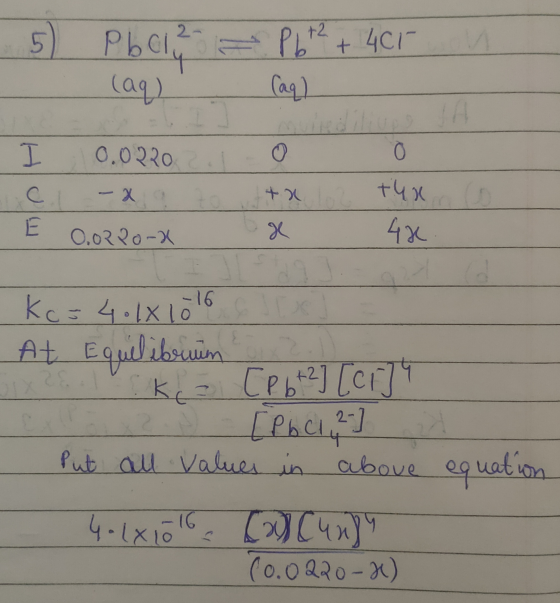 5) PbCl₄²⁻ ⇌ Pb⁺² + 4Cl⁻
(aq) (aq)
I 0.0220 0 0
C -x +x +4x
E 0.0220-x x 4x
Kc = 4.1x10⁻¹⁶
At Equilibrium
Kc = [Pb⁺²][Cl⁻]⁴
[PbCl₄²⁻]
Put all values in above equation
4.1x10⁻¹⁶ = [x][4x]⁴
(0.0220-x)